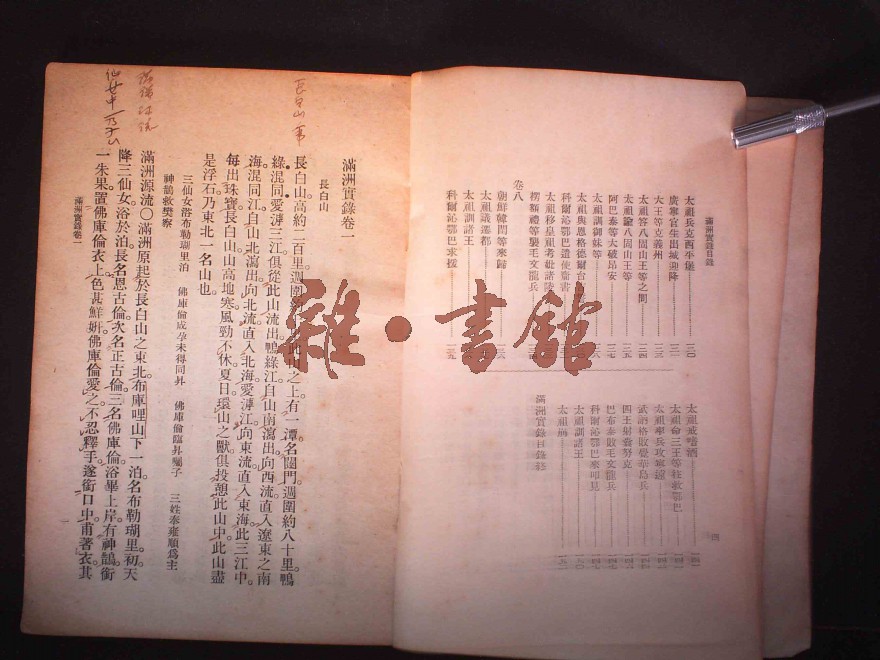 滿洲實錄目錄
太祖兵克西平堡 一三〇
廣寧官生出城迎降 一三一
大王等克義州 一三三
太祖答八固山王等之問 一三四
太祖諭八固山王等 一三五
阿巴泰等大破昂安 一三七
太祖訓御妹等
太祖與恩格德爾台
科爾沁鄂巴遣使齎書
太祖移皇祖考妣諸陵
楞額禮等襲毛文龍兵
卷八
朝鮮韓閏等來歸
太祖議遷都
太祖訓諸王
科爾沁鄂巴求援 一三九
太祖戒嗜酒
太祖命三王等往救鄂巴
太祖率兵攻寧遠
武訥格敗覺華島兵
四王射翁努克
巴布泰敗毛文龍兵
科爾沁鄂巴來叩見
太祖訓諸王
太祖崩
滿洲實錄目錄終
四
滿洲實錄卷一
長白山
長白山高約二百里週圍約千里此山之上有一潭名闥門週圍約八十里鴨
綠混同愛滹三江俱從此山流出鴨綠江自山南瀉出向西流直入遼東之南
海混同江自山北瀉出向北流直入北海愛滹江向東流直入東海此三江中
每出珠寶長白山山高地寒風勁不休夏日環山之獸俱投憩此山中此山盡
是浮石乃東北一名山也
三仙女浴布勒瑚里泊　佛庫倫成孕未得同昇　佛庫倫臨昇囑子　三姓奉雍順爲主
神鵲救樊察
滿洲源流〇滿洲原起於長白山之東北布庫哩山下一泊名布勒瑚里初天
降三仙女浴於泊長名恩古倫次名正古倫三名佛庫倫浴畢上岸有神鵲銜
一朱果置佛庫倫衣上色甚鮮妍佛庫倫愛之不忍釋手遂銜口中甫著衣其
滿洲實錄卷一
長白山
雜·書館